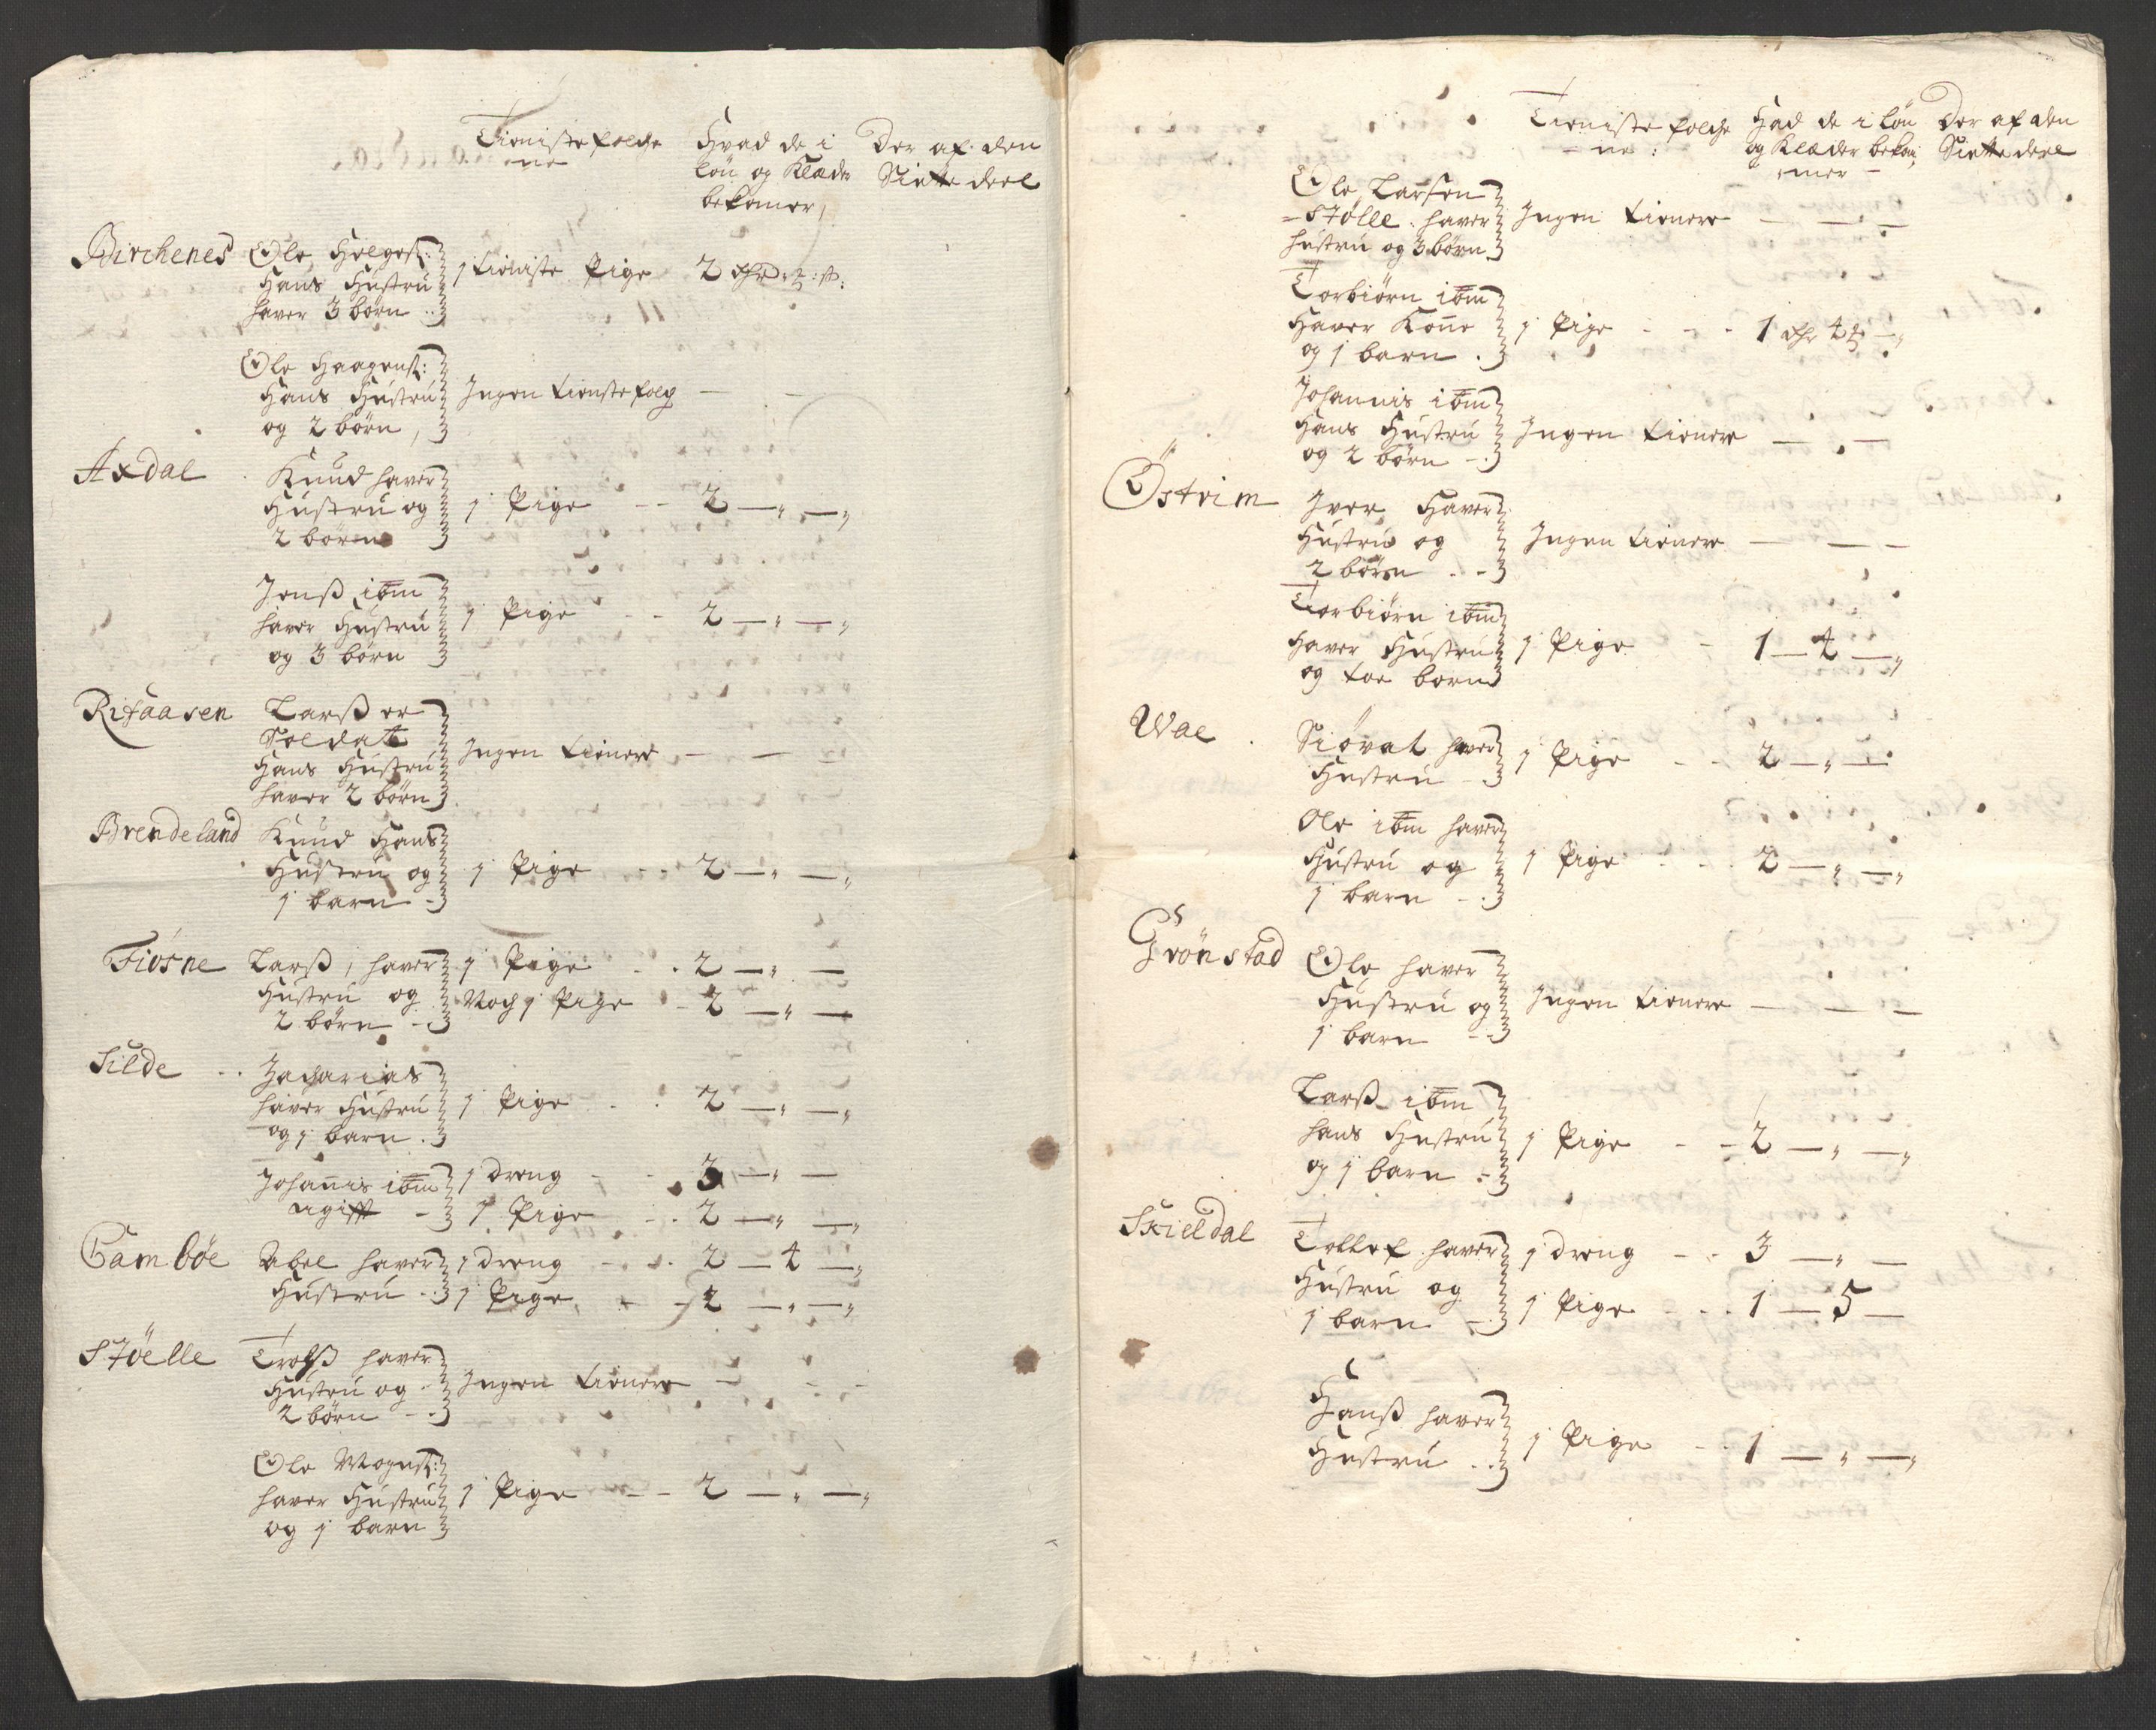 Tienistefolche
ne
Hvad de i
løn og Klæder
bekomer,
Der af den
Siette deel
Birchenes Ole Helges:
Hans Hustru
haver 3 børn
1 tieniste Pige 2
Ole Haagens:
Hans Hustru
og 2 børn,
Ingen tienstefolch
Axdal Knud haver
Hustru og
2 børn
1 Pige 2 — „ — „
Jenß ibm
haver Hustru
og 3 børn
1 Pige 2 — „ — „
Ritaasen Larß er
Soldat
Hans Hustru
haver 2 børn
Ingen tienere — — —
Brendeland Knud Hans
Hustru og
1 barn
1 Pige 2 — „ — „
Fiøsne Larß, haver
Hustru og
2 børn
1 Pige 2 — „ —
Noch 1 Pige 2 — „ —
Silde Zacharias
haver Hustru
og 1 barn
1 Pige 2 — „ — „
Johannis ibm
ugifft
1 dreng 3 — „ —
1 Pige 2 — „ — „
Gambøe Abel haver
Hustru
1 dreng 2 — 4 — „
1 Pige 2 — „ — „
Støelle Trolß haver
Hustru og
2 børn
Ingen tienere — - -
Ole Mogens:
haver Hustru
og 1 barn
1 Pige 2 — „ — „
Tienistefolche
ne:
Had de i løn
og Klæder bekom
mer
Der af den
Siette deel
Ole Larsen
Stølle haver
hustru og 3 børn
Ingen tienere — — —
Torbiørn ibm
haver Kone
og 1 barn
1 Pige 1 4
Johannis ibm
Hans Hustru
og 2 børn
Ingen tienere — —
Östrim Iver Haver
Hustru og
2 børn
Ingen tienere — — —
Torbiørn ibm
haver Hustru
og toe born
1 Pige 1 — 4 — „
Wae Siøvat haver
Hustru
1 Pige 2 — „ —
Ole ibm haver
Hustru og
1 barn
1 Pige 2 — „ — „
Grönstad Ole haver
Hustru og
1 barn
Ingen tienere — — —
Larß ibm
hans Hustru
og 1 barn
1 Pige 2 — „ — „
Skieldal Tollef haver
Hustru og
1 barn
1 dreng 3 — „ —
1 Pige 1 — 5 —
Hanß haver
Hustru
1 Pige 1 — „ — „